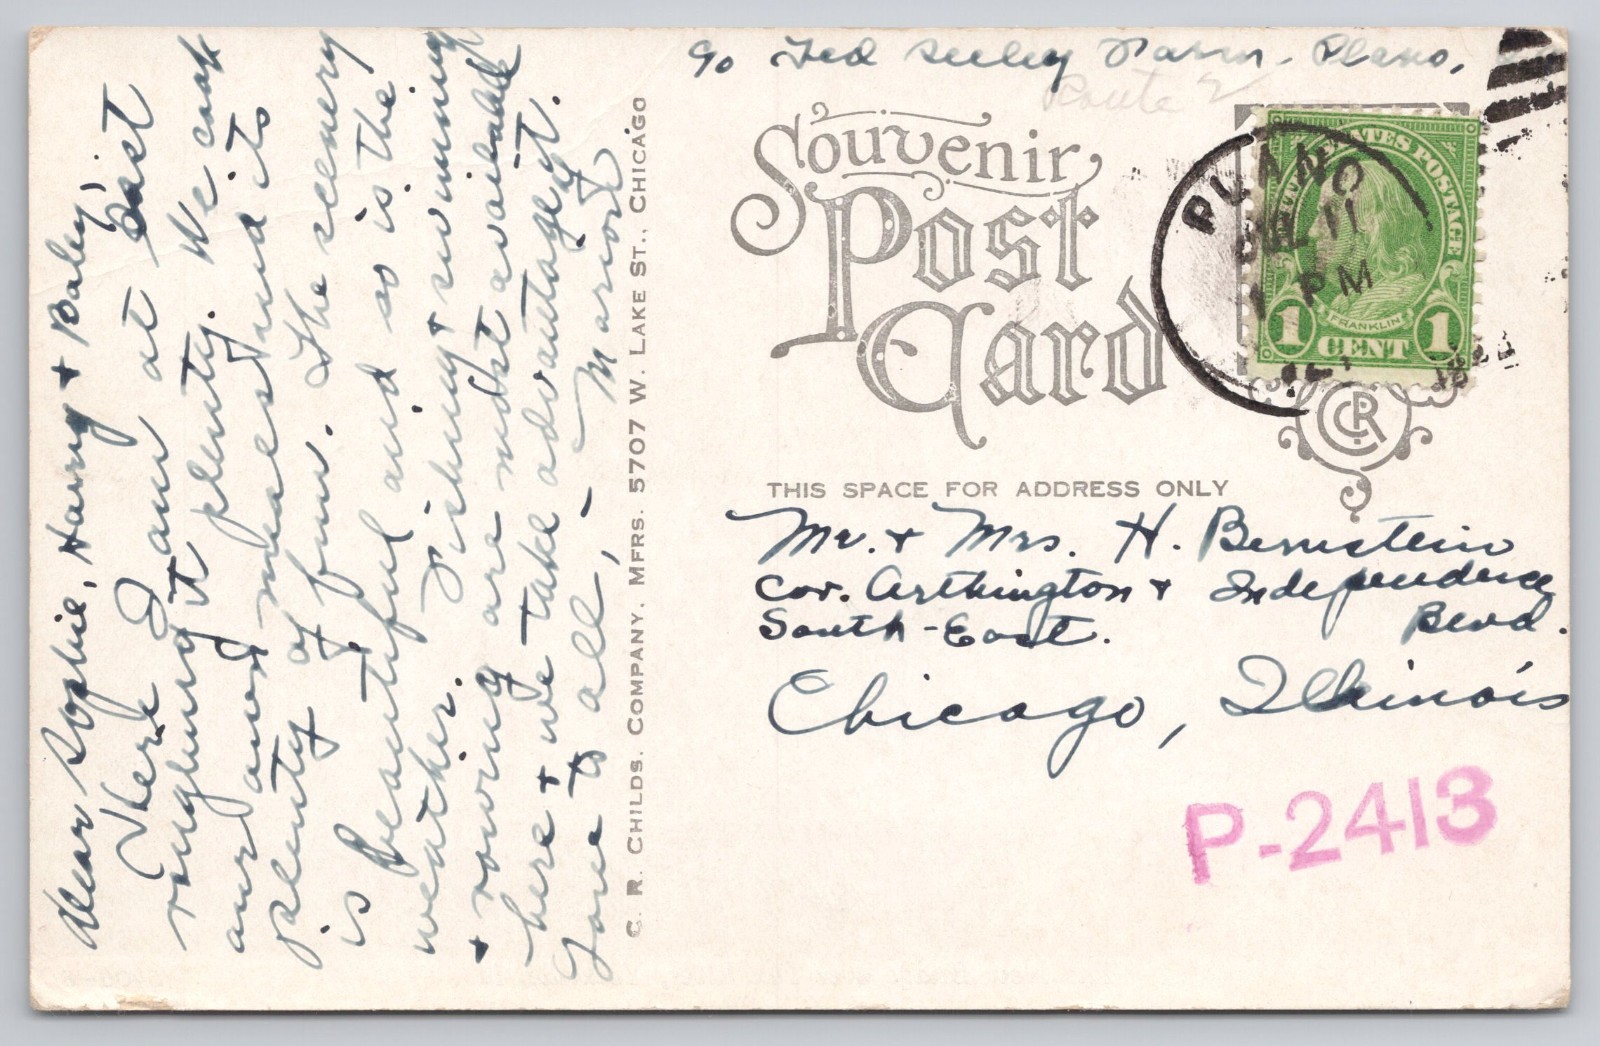 c/o Ted Seeley Farm, Plano,
Route 2
Souvenir
Post
Card
UNITED STATES POSTAGE
FRANKLIN
1 CENT 1
PLANO
JUL 11
1 PM
ILL.
THIS SPACE FOR ADDRESS ONLY
Mr. + Mrs. H. Bernstein
Cor. Arthington + Independence
Blvd.
South-East.
Chicago, Illinois
P-2413
C. R. CHILDS. COMPANY. MFRS. 5707 W. LAKE ST., CHICAGO
CRC
Dear Sophie, Harry + Baby,
Here I am at last
roughing it plenty. We cook
our own meals and its
plenty of fun. The scenery
is beautiful and so is the
weather. Fishing + swimming
+ rowing are most available
here + we take advantage of it.
Love to all, -
Marion